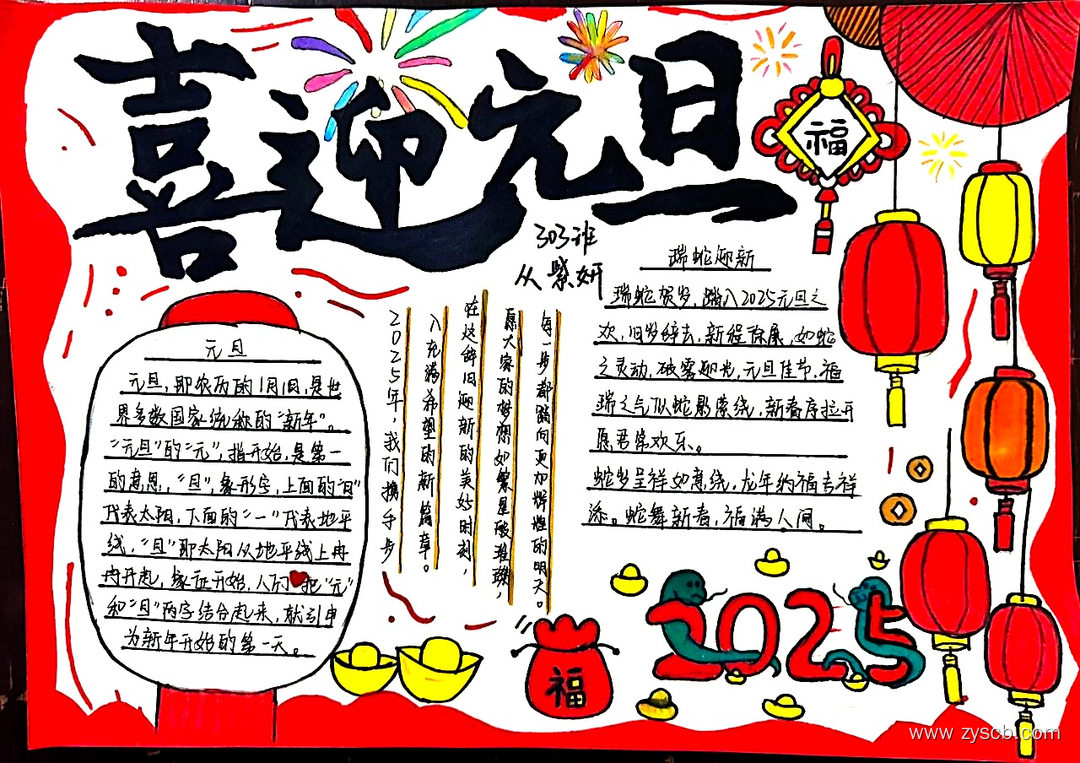 喜迎元旦
福
303班
从紫妍
元旦
元旦，即农历的1月1日，是世
界多数国家统称的“新年”。
“元旦”的“元”，指开始，是第一
的意思，“旦”，象形字，上面的“日”
代表太阳，下面的“一”代表地平
线，“旦”即太阳从地平线上冉
冉升起，象征开始，人们把“元”
和“旦”两字结合起来，就引申
为新年开始的第一天。
2025年，我们携手步
入充满希望的新篇章。
在这辞旧迎新的美妙时刻，
愿大家的梦想如繁星般璀璨，
每一步都踏向更加辉煌的明天。
瑞蛇迎新
瑞蛇贺岁，踏入2025元旦之
欢，旧岁辞去，新程保康，如蛇
之灵动，破雾迎光，元旦佳节，福
瑞之气似蛇影萦绕，新春序拉开
愿君常欢乐。
蛇岁呈祥如意绕，龙年纳福吉祥
添。蛇舞新春，福满人间。
福
2025
www.zyscb.com